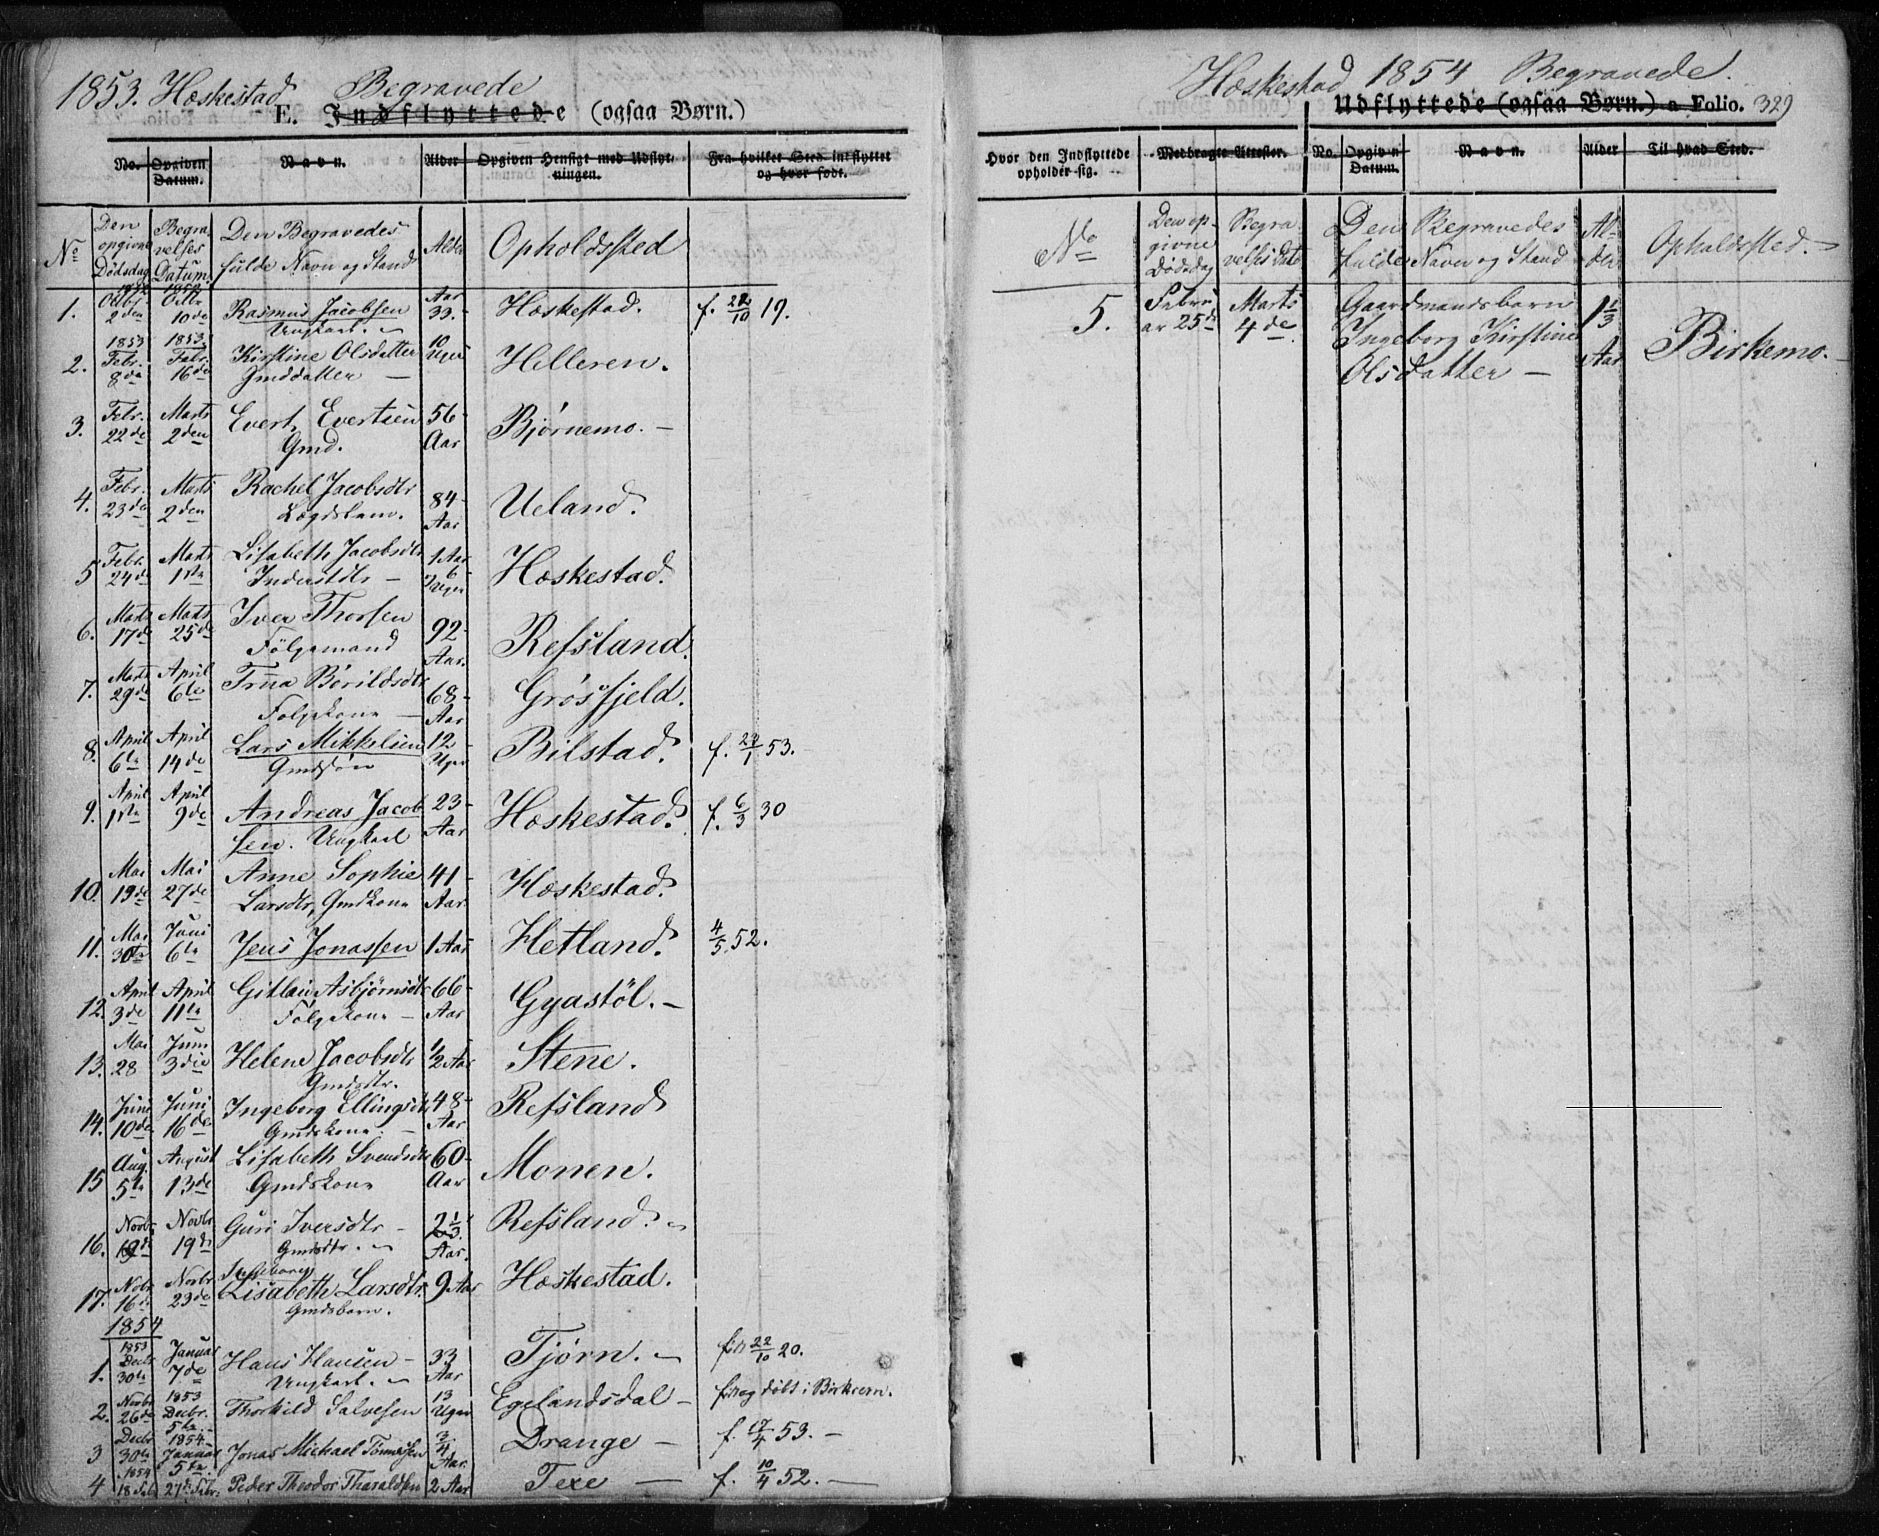 1853. Hæskestad Begravede
E. Indflyttede (ogsaa Børn.)
No. Opgiven Datum. Navn. Alder Opgiven Hensigt med Udflytningen. Fra hvilket Sted indflyttet og hvor født.
No Den opgivne Dødsdag Begravelses Datum Den Begravedes fulde Navn og Stand Alder Opholdssted
1. 1852 Octbr 2den 1852 Octbr 10de Rasmus Jacobsen Ungkarl. Aar 33. Hæskestad. f. 22/10 19.
2. 1853 Febr. 8de 1853 Febr. 16de Kirstine Olsdatter Gmddatter — 10 Uger Helleren.
3. Febr. 22de Marts 2den Evert Evertsen Gmd. 56 Aar Bjørnemo. —
4. Febr. 23de Marts 2den Rachel Jacobsdtr Lægdslem. 84 Aar Ueland.
5 Febr. 24de Marts 1ste Lisabeth Jacobsdtr Inderstdtr — 1 Aar 6 Uger Hæskestad.
6. Marts 17de Marts 25de Iver Thorsen Følgemand 92 Aar. Refsland.
7. Marts 29de April 6te Børildsdtr Følgekone — 68 Aar Grøsfjeld.
8. April 6te April 14de Lars Mikkelsen Gmdsøn 12 Uger Bilstad. f. 24/1 53.
9. April 1ste April 9de Andreas Jacobsen. Ungkarl 23 Aar Hæskestad. f. 6/3 30
10. Mai 19de Mai 27de Anne Sophie Larsdtr, Gmdkone 41 Aar. Hæskestad.
11. Mai 30te Juni 6te Jens Jonassen 1 Aar Hetland. 4/5 52.
12. April 3de April 11te Asbjørnsdtr Følgekone — 66 Aar Gyastøl. —
13. Mai 28 Juni 3die Helene Jacobsdtr Gmdsdtr. 1/2 Aar Stene.
14. Juni 10de Juni 16de Ingeborg Ellingsdtr Gmdskone. — 48 Aar Refsland
15 Aug. 5te August 13de Lisabeth Svendsdtr Gmdskone 60 Aar Monen.
16. Novbr Novbr 19de Guri Iversdtr — Gmdsdtr. 2 1/3 Aar. Refsland.
17. Nobr 16de Novbr 23de Ingeborg Lisabeth Larsdtr. Gmdsbarn. 9 Aar Hæskestad.
1854
1. 1853 Decbr 30te Januar 7de Hans Hansen — Ungkarl. 33 Aar Tjørn. 22/10 20.
2. Novbr 26de 1853 Decbr. 5te Thorkild Salvesen 13 Uger Egelandsdal — døbt i Birkrem.
3 Decbr 30te 1854 Januar 5te Jonas Michael Tønnessen 3/4 Aar. Drange — f. 17/4 53. —
4 1854 18 Feb 27de Febr. Peder Theodor Tharaldsen 2 Aar Texe — f. 10/4 52. —
Hæskestad 1854 Begravede.
Udflyttede (ogsaa Børn.) a Folio. 329
Hvor den Indflyttede opholder sig. Medbragte Attester. No. Opgiven Datum. Navn. Alder Til hvad Sted.
No Den opgivne Dødsdag Begravelses Dato Den Begravedes fulde Navn og Stand Alder Opholdssted. —
5. Februar 25de Marts 4de Gaardmandsbarn Ingeborg Kirstine Olsdatter — 1 1/3 Aar Birkemo. —